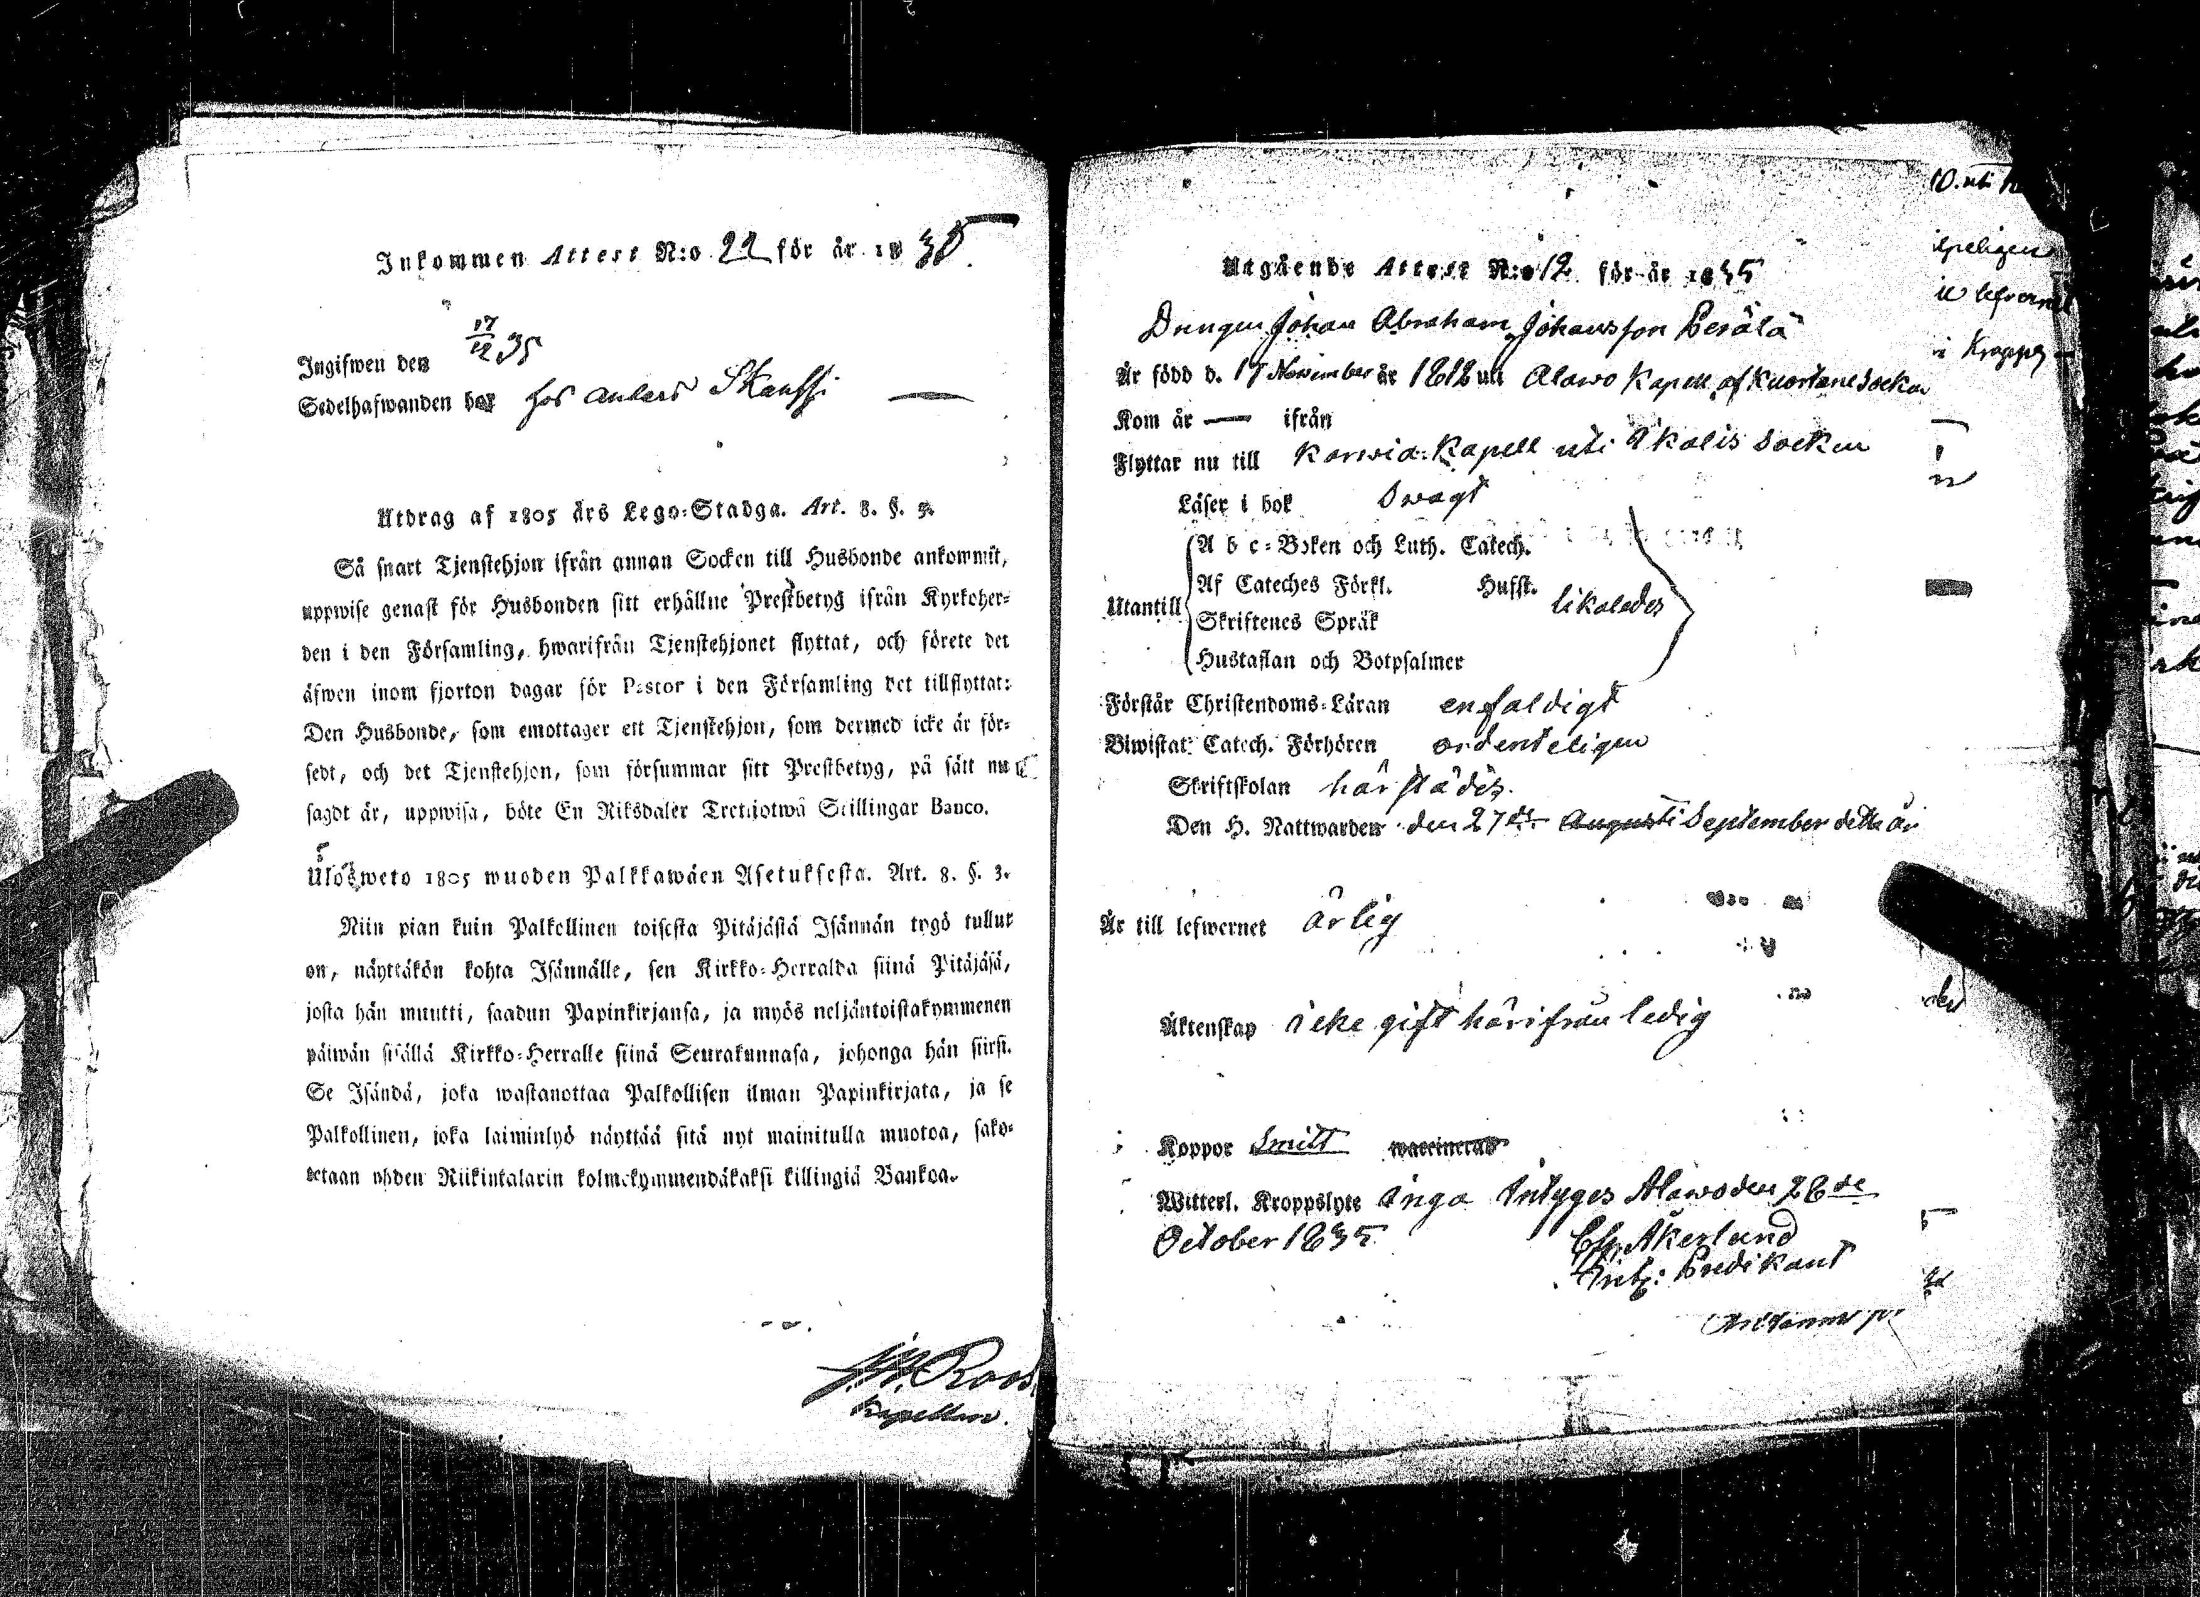 Inkommen Attest N:o 22 för år 1835.
Ingifwen den 17/12 35
Sedelhafwanden hos Anders Skanssi
Utdrag af 1805 års Lego-Stadga. Art. 8. §. 3.
Så snart Tjenstehjon ifrån annan Socken till Husbonde ankommit,
uppwise genast för Husbonden sitt erhållne Prestbetyg ifrån Kyrkoher-
den i den Församling, hwarifrån Tjenstehjonet flyttat, och förete det
äfwen inom fjorton dagar för Pastor i den Församling det tillflyttat:
Den Husbonde, som emottager ett Tjenstehjon, som dermed icke är för-
sedt, och det Tjenstehjon, som försummar sitt Prestbetyg, på sätt nu
sagdt är, uppwisa, böte En Riksdaler Trettiotwå Skillingar Banco.
Ulosweto 1805 wuoden Palkkawäen Asetuksesta. Art. 8. §. 3.
Niin pian kuin Palkollinen toisesta Pitäjästä Isännän tygö tullut
on, näyttäkön kohta Isännälle, sen Kirkko-Herralda siinä Pitäjäsä,
josta hän muutti, saadun Papinkirjansa, ja myös neljäntoistakymmenen
päiwän sisällä Kirkko-Herralle siinä Seurakunnasa, johonga hän siirsi.
Se Isändä, joka wastanottaa Palkollisen ilman Papinkirjata, ja se
Palkollinen, joka laiminlyö näyttää sitä nyt mainitulla muotoa, sako-
tetaan yhden Riikintalarin kolmekymmendäkaksi killingiä Bankoa.
Roos
Kapellan.
Utgående Attest N:o 12 för år 1835
Drängen Johan Abraham Johansson Perälä
Är född d. 17 November år 1818 uti Alawo Kapell af Kuortane Socken
Kom år — ifrån
Flyttar nu till Karwia Kapell uti Ikalis Socken
Läser i bok Swagt
A b c-Boken och Luth. Catech.
Af Cateches Förkl. Hufst.
Utantill likaledes
Skriftenes Språk
Hustaflan och Botpsalmer
Förstår Christendoms-Läran enfaldigt
Biwistat: Catech. Förhören ordenteligen
Skriftskolan härstädes.
Den H. Nattwarden den 27de Augusti September detta år
Är till lefwernet ärlig
Äktenskap icke gift härifrån ledig
Koppor Smitt waccinerad
Witterl. Kroppslyte inga Intyges Alawo den 28de
October 1835.
Åkerlund
Predikant